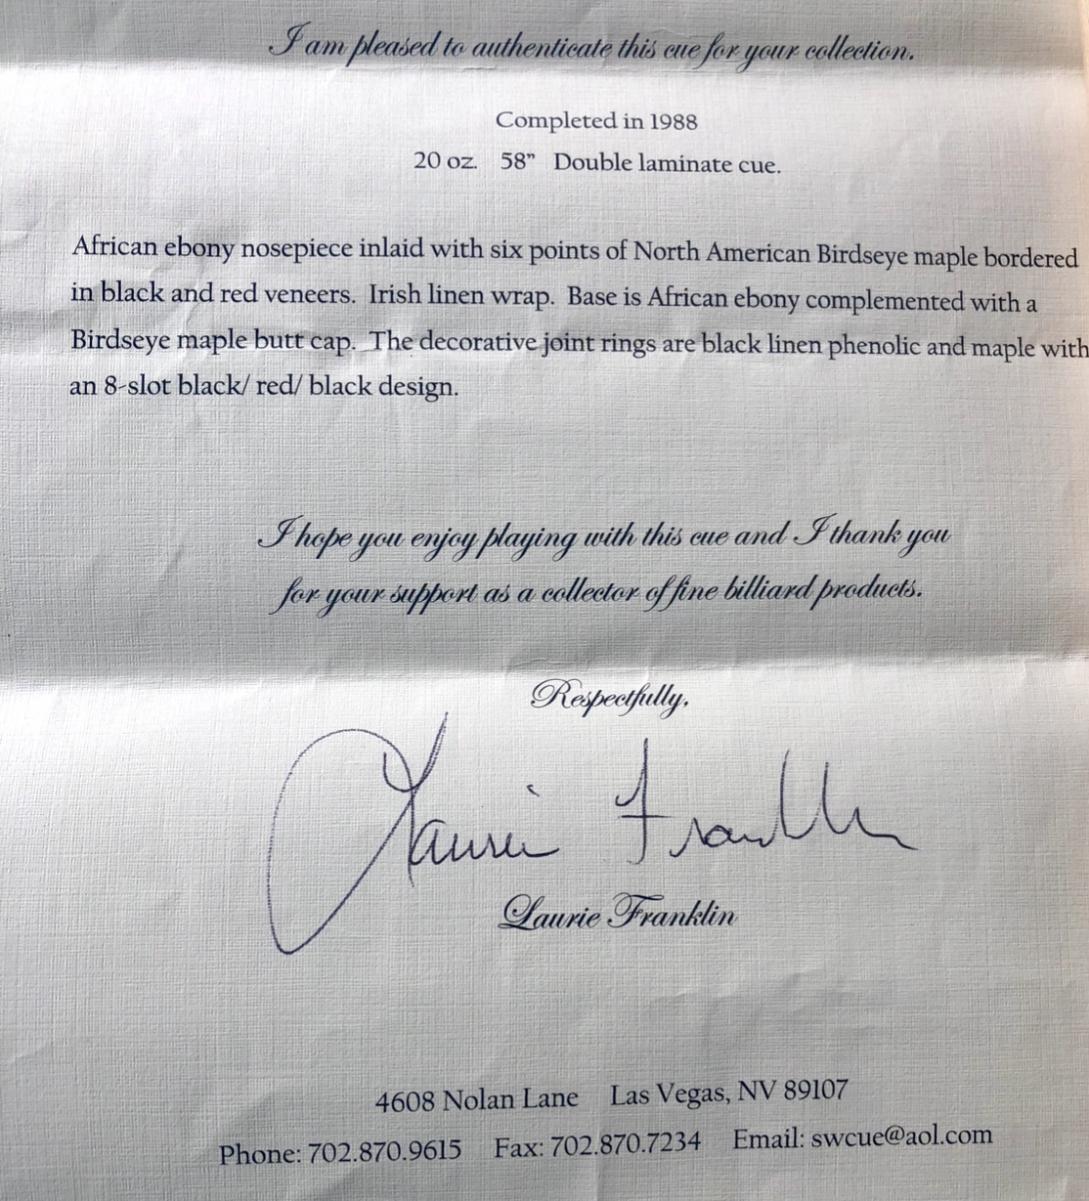 I am pleased to authenticate this cue for your collection.
Completed in 1988
20 oz. 58” Double laminate cue.
African ebony nosepiece inlaid with six points of North American Birdseye maple bordered
in black and red veneers. Irish linen wrap. Base is African ebony complemented with a
Birdseye maple butt cap. The decorative joint rings are black linen phenolic and maple with
an 8-slot black/ red/ black design.
I hope you enjoy playing with this cue and I thank you
for your support as a collector of fine billiard products.
Respectfully,
Laurie Franklin
Laurie Franklin
4608 Nolan Lane Las Vegas, NV 89107
Phone: 702.870.9615 Fax: 702.870.7234 Email: swcue@aol.com